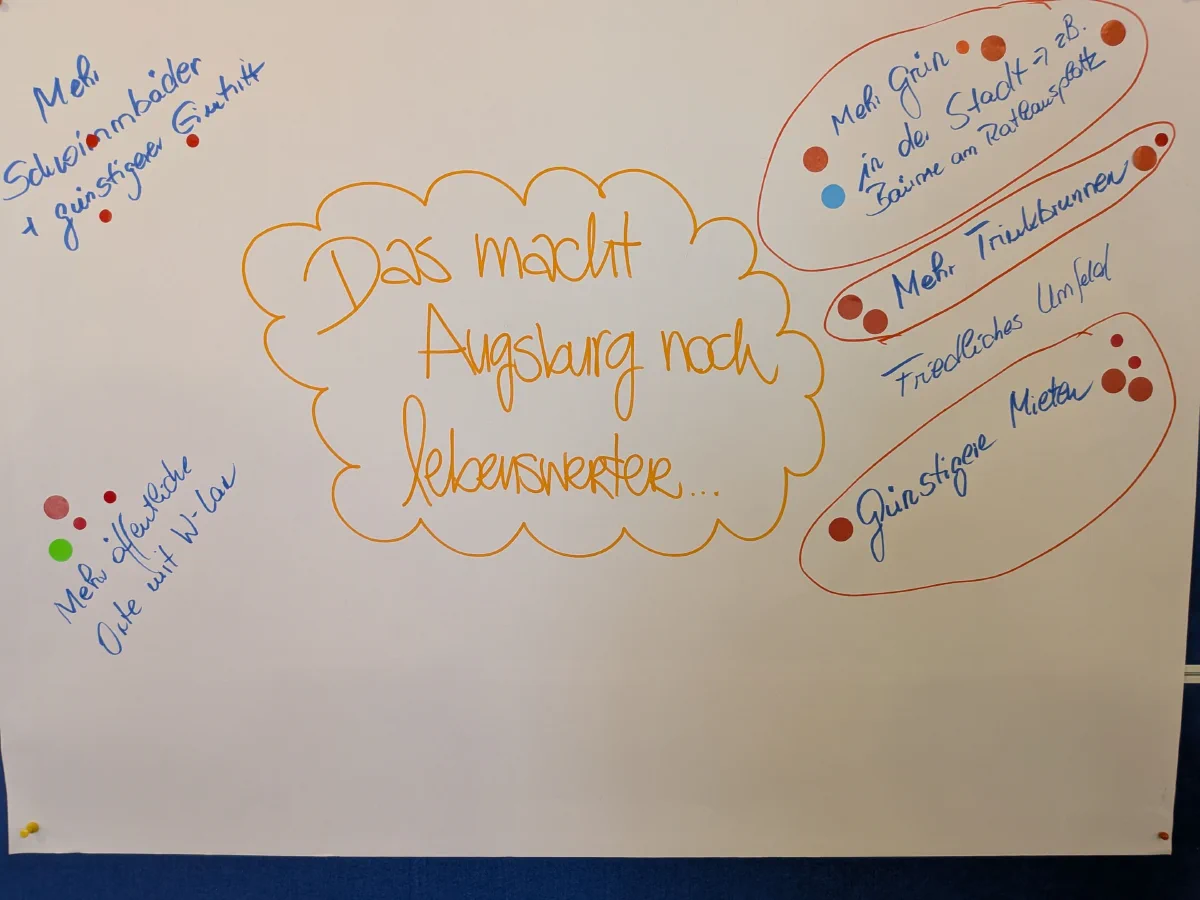 Das macht
Augsburg noch
lebenswerter...
Mehr
Schwimmbäder
+ günstigerer Eintritt
Mehr Grün
in der Stadt → zB.
Bäume am Rathausplatz
Mehr Trinkbrunnen
Friedliches Umfeld
Günstigere Mieten
Mehr öffentliche
Orte mit W-Lan